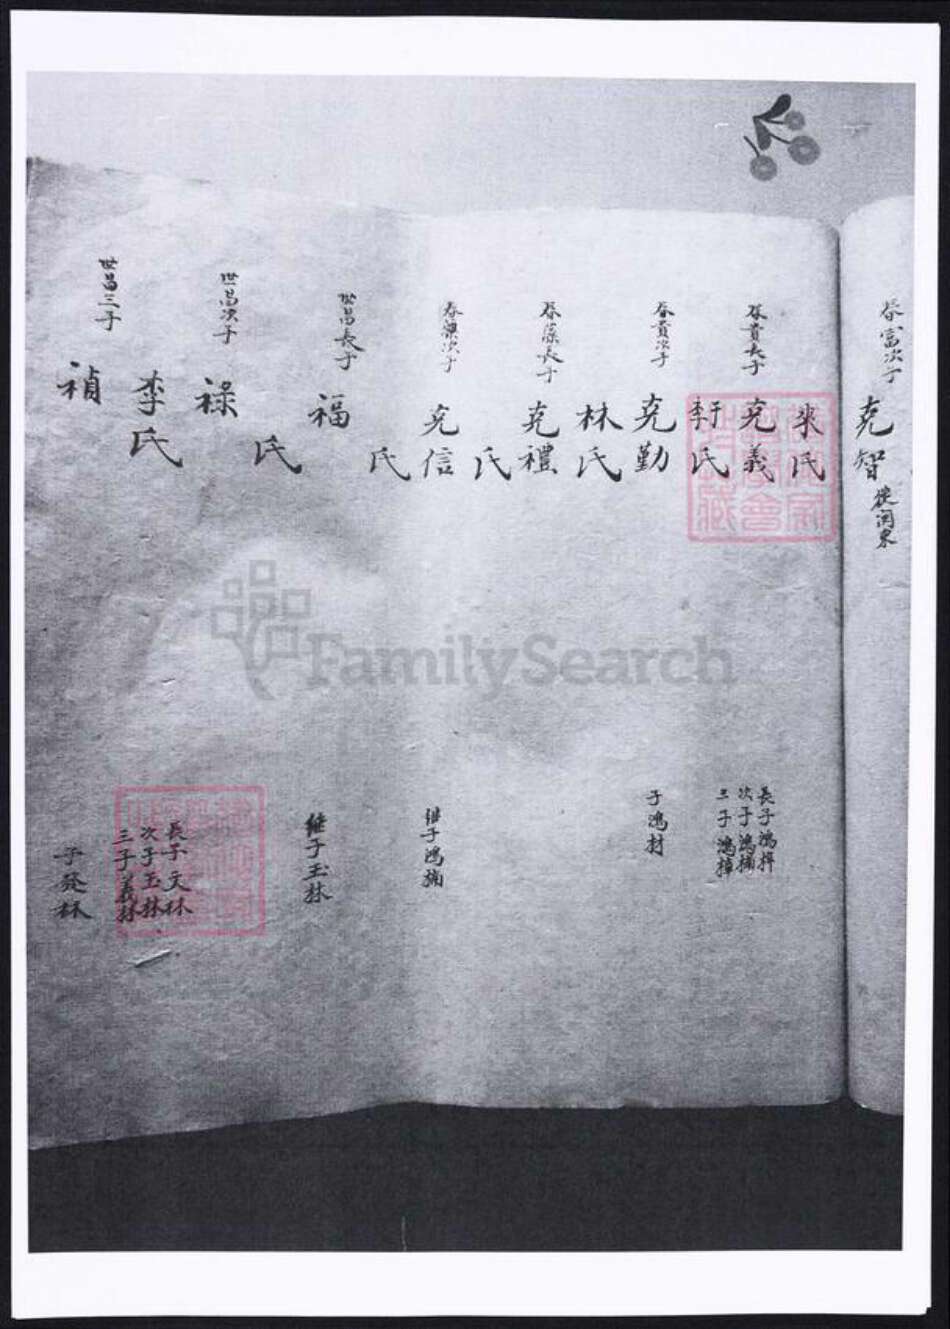 春富次子
克智
從関東
來氏
春貴長子
克義
于氏
李氏
長子鴻
次子鴻楠
三子鴻樟
春貴次子
克勤
子鴻材
林氏
春藻長子
克禮
氏
春藻次子
克信
继子鴻楠
氏
世昌長子
福
继子玉林
氏
世昌次子
祿
長子文林
次子玉林
三子義林
李氏
世昌三子
禎
子發林
FamilySearch